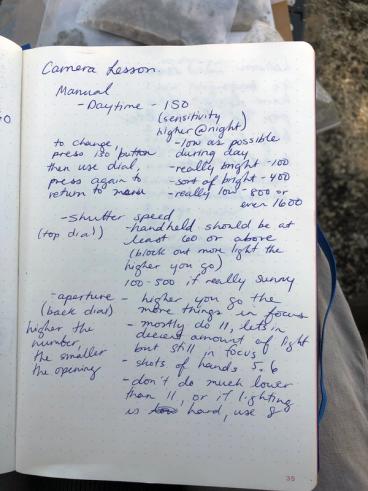 Camera Lesson.
Manual
- Daytime - ISO
(sensitivity
higher @ night)
to change,
press iso button
then use dial,
press again to
return to menu
- low as possible
during day
- really bright - 100
- sort of bright - 400
- really low - 800 or
even 1600
- shutter speed
(top dial)
- handheld should be at
least 60 or above
(block out more light the
higher you go)
100-500 if really sunny
- aperture
(back dial)
higher the
number,
the smaller
the opening
- higher you go the
more things in focus
- mostly do 11, lets in
decent amount of light
but still in focus
- shots of hands 5.6
- don't do much lower
than 11, or if lighting
is hard, use 8
35